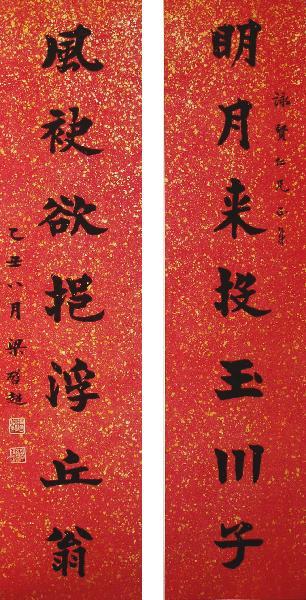 詠賢仁兄正
明月来投玉川子
風袂欲挹浮丘翁
乙丑八月 梁啓超